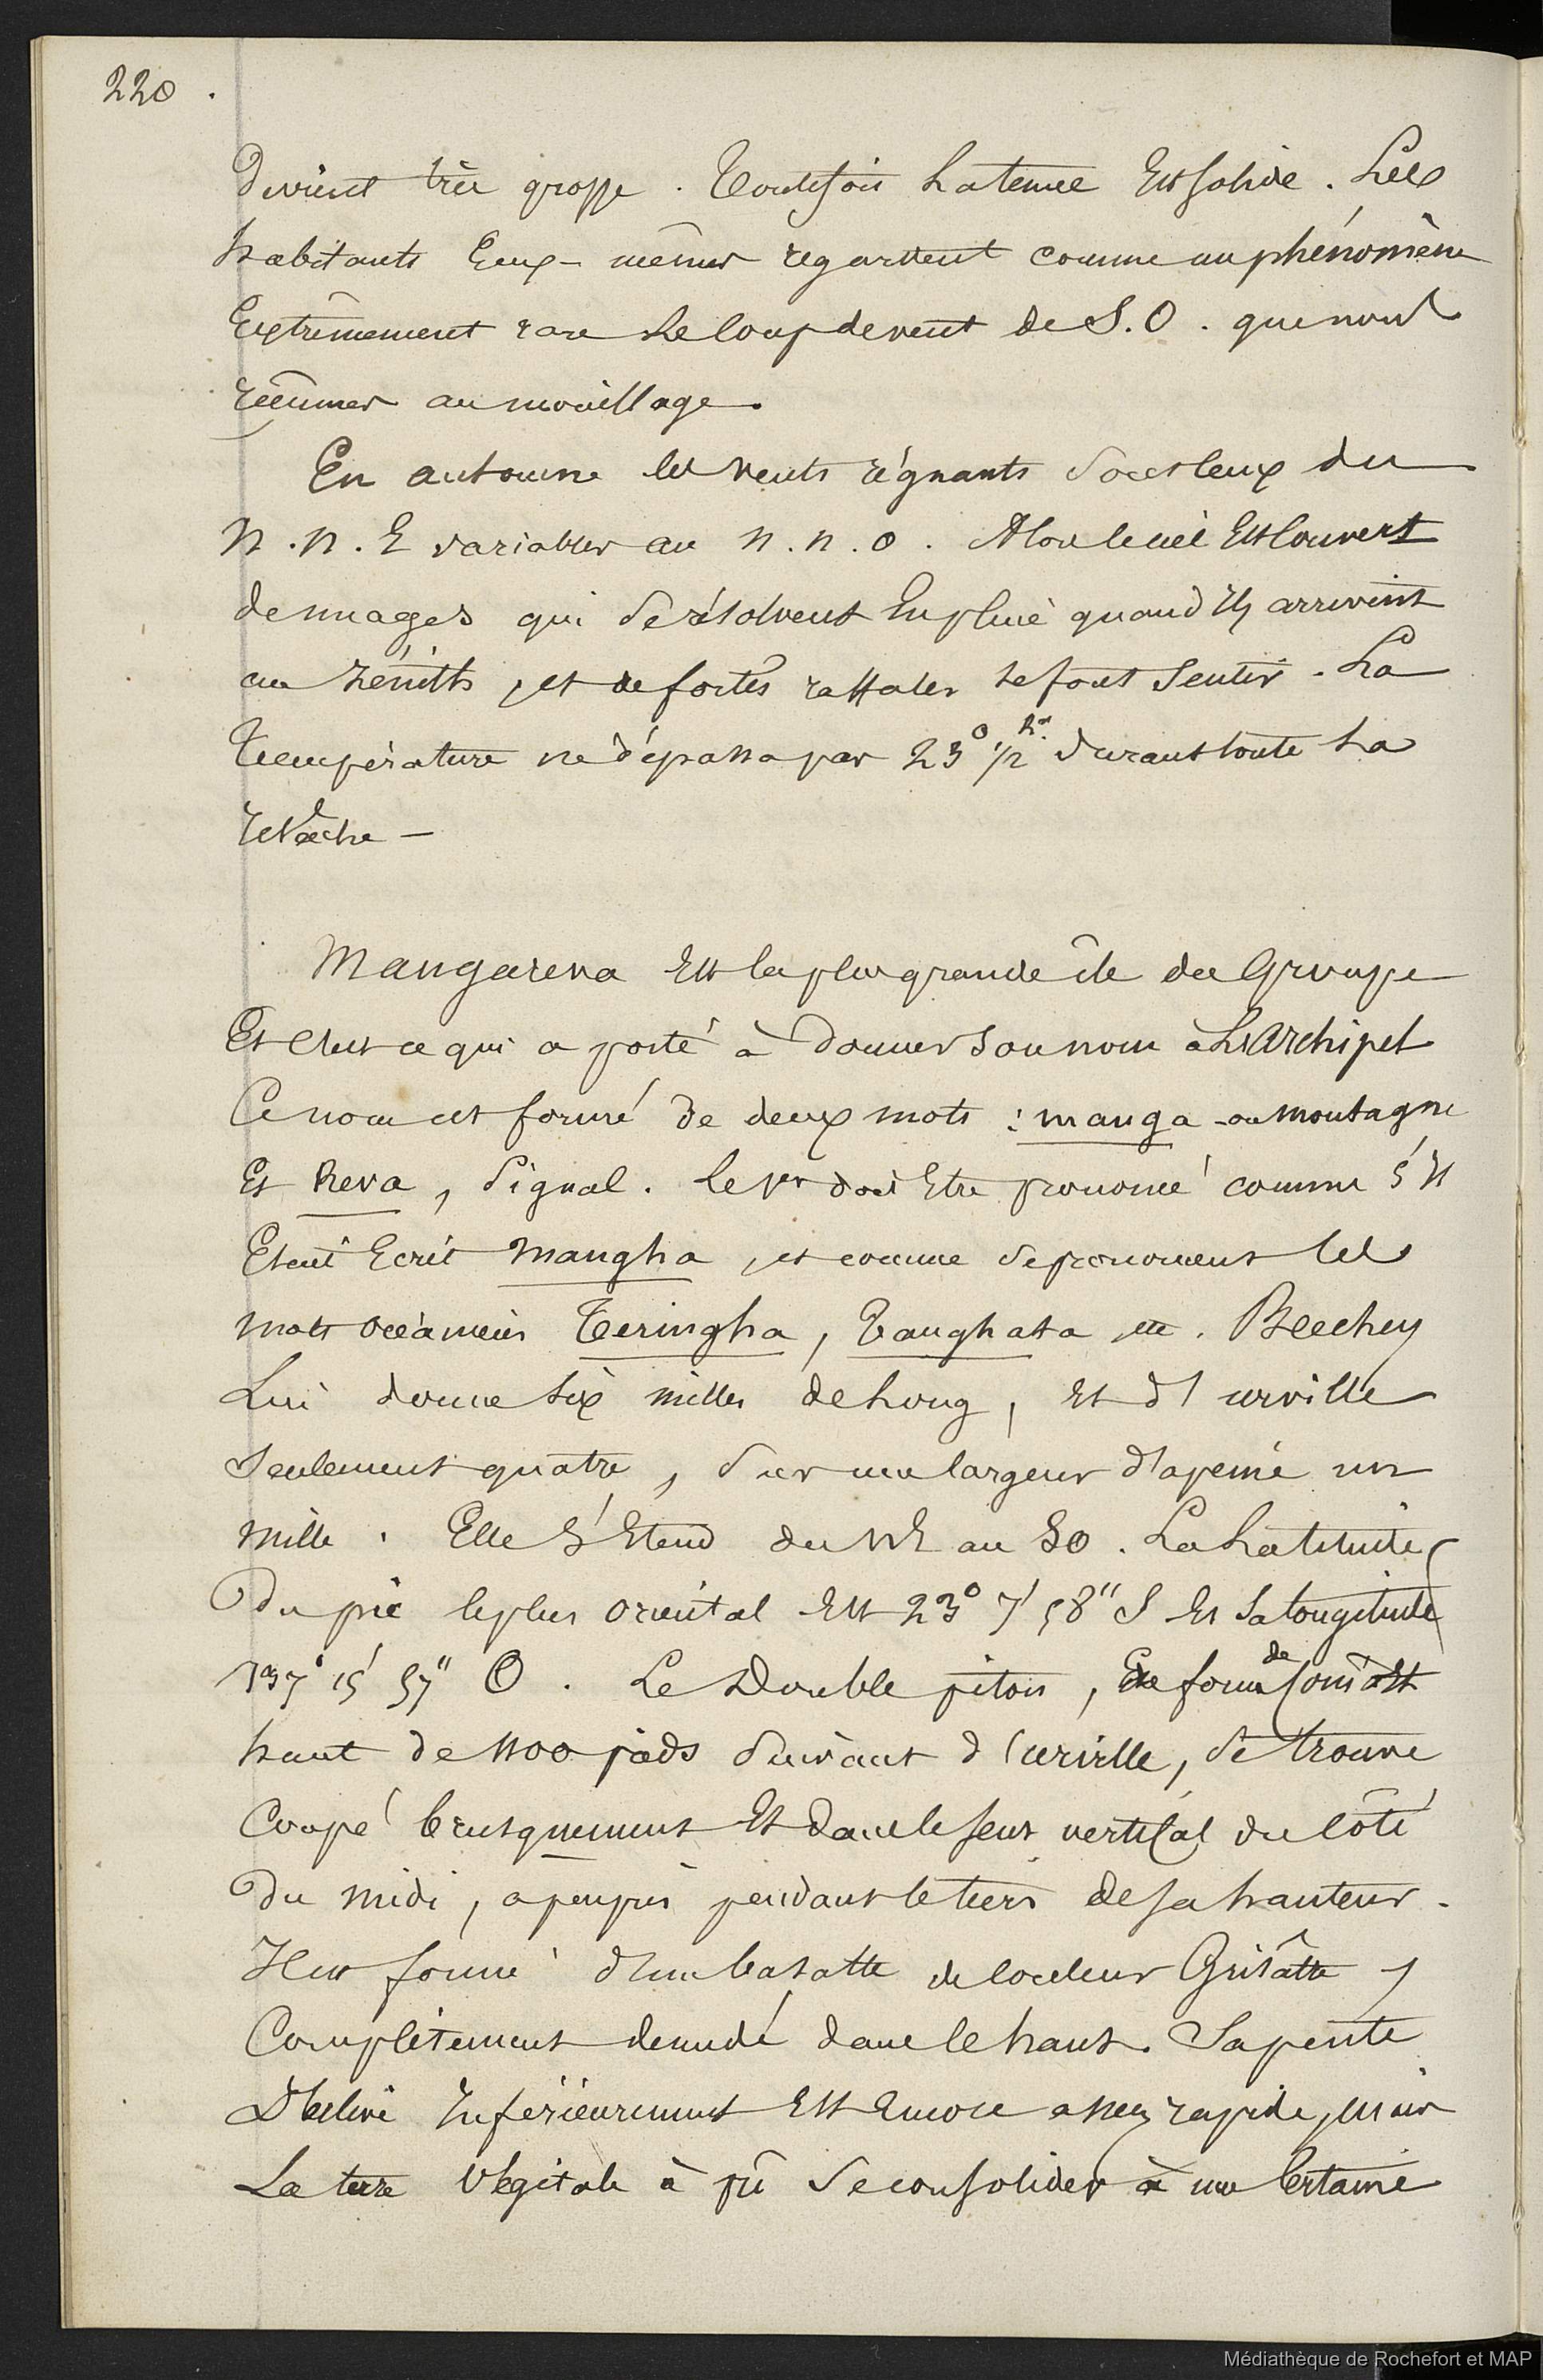 220.
Devient très grosse. Toutefois La tenue Est solide. Les
habitants Eux-mêmes regardent comme un phénomène
Extrêmement rare Le Coup de vent de S.O. que nous
reçumes au mouillage.
En automne les Vents régnants Sont ceux du
N.N.E variables au N.N.O. Alors le ciel Est Couvert
de nuages qui Se résolvent En pluie quand Ils arrivent
au Zénith, et de fortes raffales se font Sentir. La
Température ne dépassa pas 23° 1/2 durant toute La
relâche —
Mangareva Est la plus grande île du Groupe
Et C'est ce qui a porté à Donner Son nom à L'Archipel
Ce nom est formé de deux mots : manga - ou montagne
Et Reva, Signal. Le 1er doit Etre prononcé comme S'il
Etait Ecrit Mangha, et comme se prononcent les
mots océaniens Teringha, Tanghata etc. Beechey
Lui donne Six milles de Long, Et d'Urville
Seulement quatre, Sur une largeur d'apeine un
Mille. Elle S'Etend du NE au SO. La Latitude
Du pic le plus Oriental Est 23° 7' 58" S Et Sa Longitude
137° 15' 57" O. Le Double piton, En forme de Coin Est
haut de 1100 pieds Suivant d'Urville, Se trouve
Coupé brusquement Et dans le sens vertical du Côté
Du Midi, apeuprès pendant le tiers de sa hauteur.
Il est formé d'un basalte de Couleur Grisâtre,
Complètement denudé dans le haut. Sa pente
Déclive Inférieurement Est Encore assez rapide, mais
La terre Végétale à pû Se consolider à une Certaine
Médiathèque de Rochefort et MAP